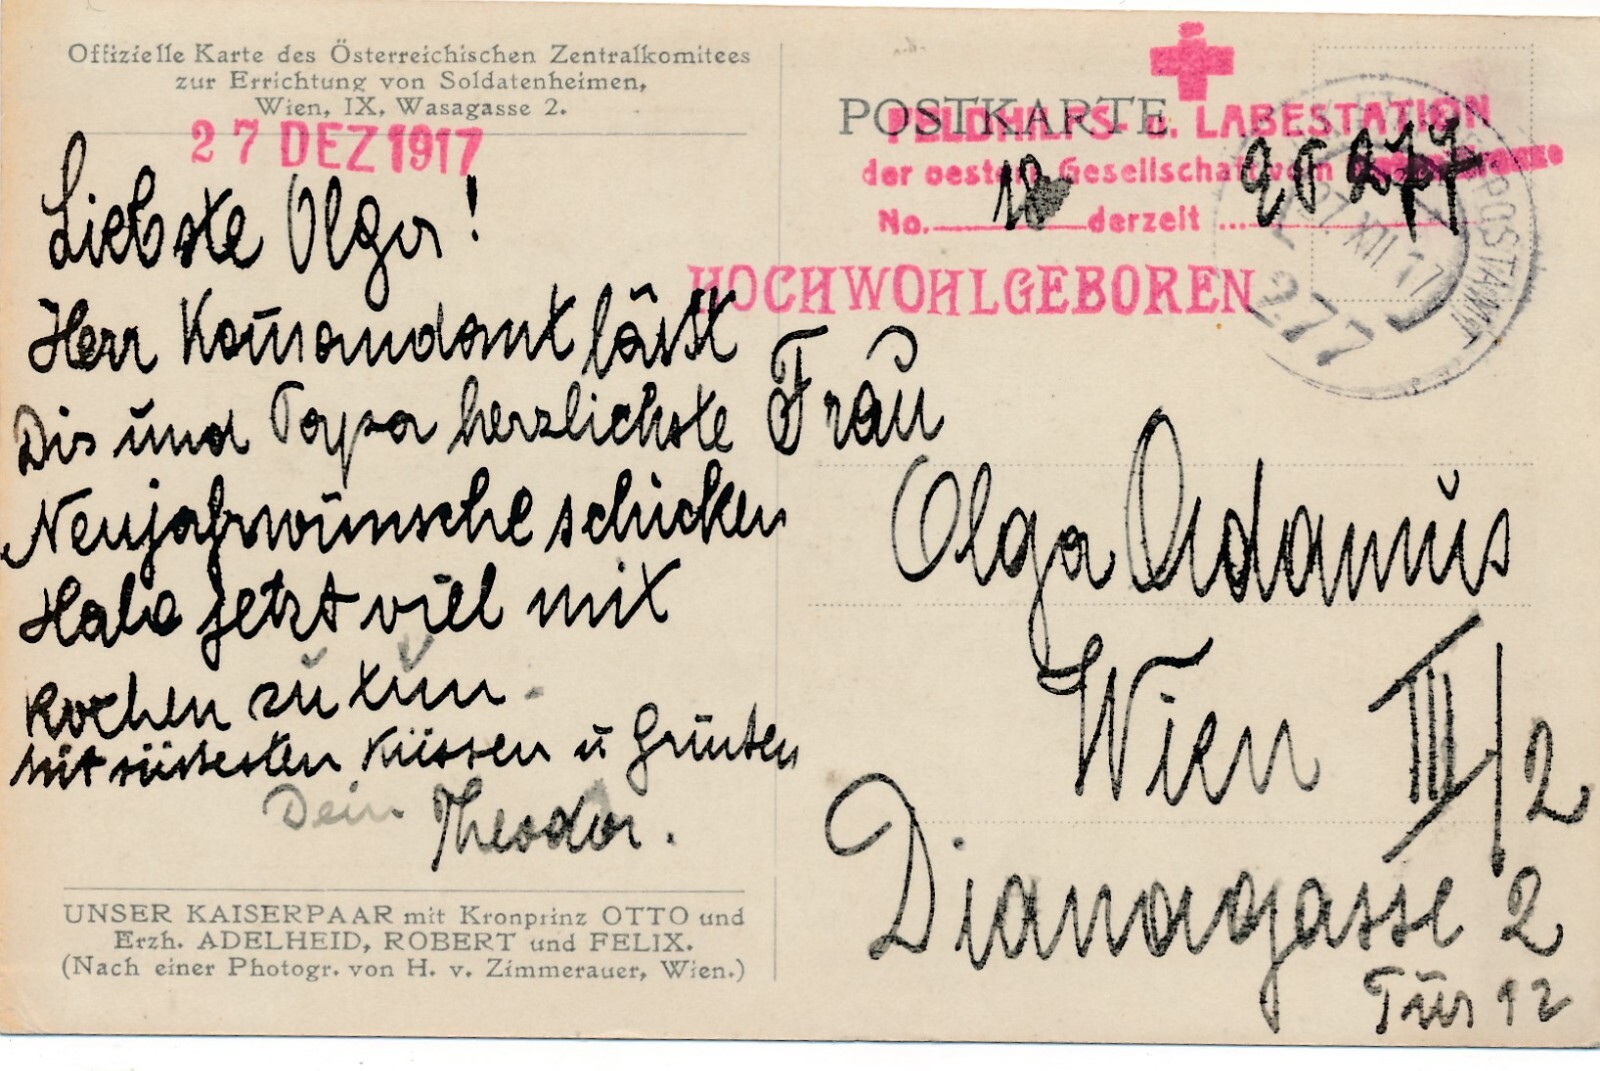 Offizielle Karte des Österreichischen Zentralkomitees
zur Errichtung von Soldatenheimen,
Wien, IX, Wasagasse 2.
27 DEZ 1917
Liebste Olga!
Herr Kom̄andant lässt
Dir und Papa herzlichste
Neujahrwünsche schicken
Habe jetzt viel mit
kochen zu tun.
Mit süssesten Küssen u Grüssen
Dein Theodor.
UNSER KAISERPAAR mit Kronprinz OTTO und
Erzh. ADELHEID, ROBERT und FELIX.
(Nach einer Photogr. von H. v. Zimmerauer, Wien.)
POSTKARTE
FELDHILFS- u. LABESTATION
der oesterr. Gesellschaft vom
No. 18 derzeit 277
HOCHWOHLGEBOREN
POSTAMT
27. XII. 17
277
Frau
Olga Adamus
Wien III/2
Dianagasse 2
Tür 12